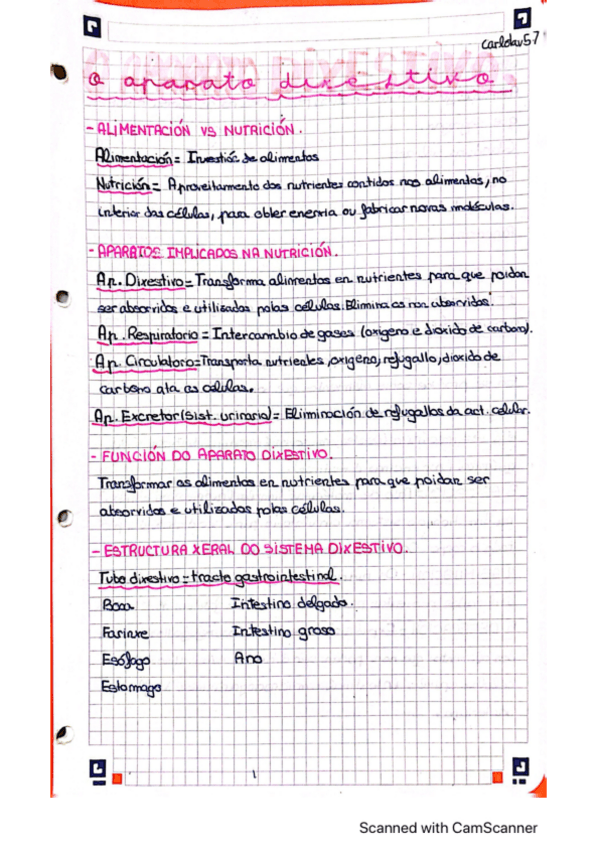 carlolav57
O aparato dixestivo
- ALIMENTACIÓN VS NUTRICIÓN.
Alimentación = Inxestión de alimentos
Nutrición = Aproveitamento dos nutrientes contidos nos alimentos, no
interior das células, para obter enerxía ou fabricar novas moléculas.
- APARATOS IMPLICADOS NA NUTRICIÓN.
Ap. Dixestivo = Transforma alimentos en nutrientes para que poidan
ser absorvidos e utilizados polas células. Elimina os non absorvidos.
Ap. Respiratorio = Intercambio de gases (oxígeno e dioxido de carbono).
Ap. Circulatorio = Transporta nutrientes, oxígeno, refugallo, dioxido de
carbono ata as células.
Ap. Excretor (Sist. urinario) = Eliminación de refugallos da act. celular.
- FUNCIÓN DO APARATO DIXESTIVO.
Transformar os alimentos en nutrientes para que poidan ser
absorvidos e utilizados polas células.
- ESTRUCTURA XERAL DO SISTEMA DIXESTIVO.
Tubo dixestivo = tracto gastrointestinal.
Boca Intestino delgado.
Farinxe Intestino groso
Esófago Ano
Estomago
1
Scanned with CamScanner